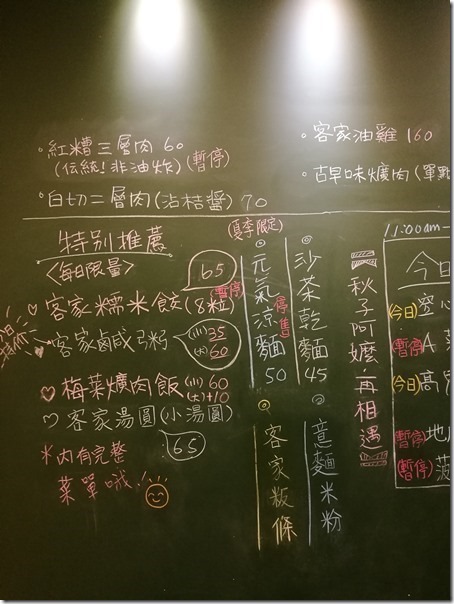 。紅糟三層肉 60
(伝統!非油炸)(暫停)
。白切二層肉(沾桔醬) 70
。客家油雞 160
。古早味爌肉(單點
特別推薦
<每日限量>
客家糯米餃(3粒) 65
暫停
客家鹹
(小)35
(大)60
♥梅菜爌肉飯 (小)60
(大)+10
♡客家湯圓(小湯圓)
65
*內有完整
菜單哦!
夏季限定
◎元氣涼麵50
停售
◎沙茶乾麵45
◎客家粄條
◎意麵米粉
秋子阿嬤·再相遇
11:00am-
今日
(今日)空心
(暫停)A菜
(今日)高
(暫停)地
(暫停)菠